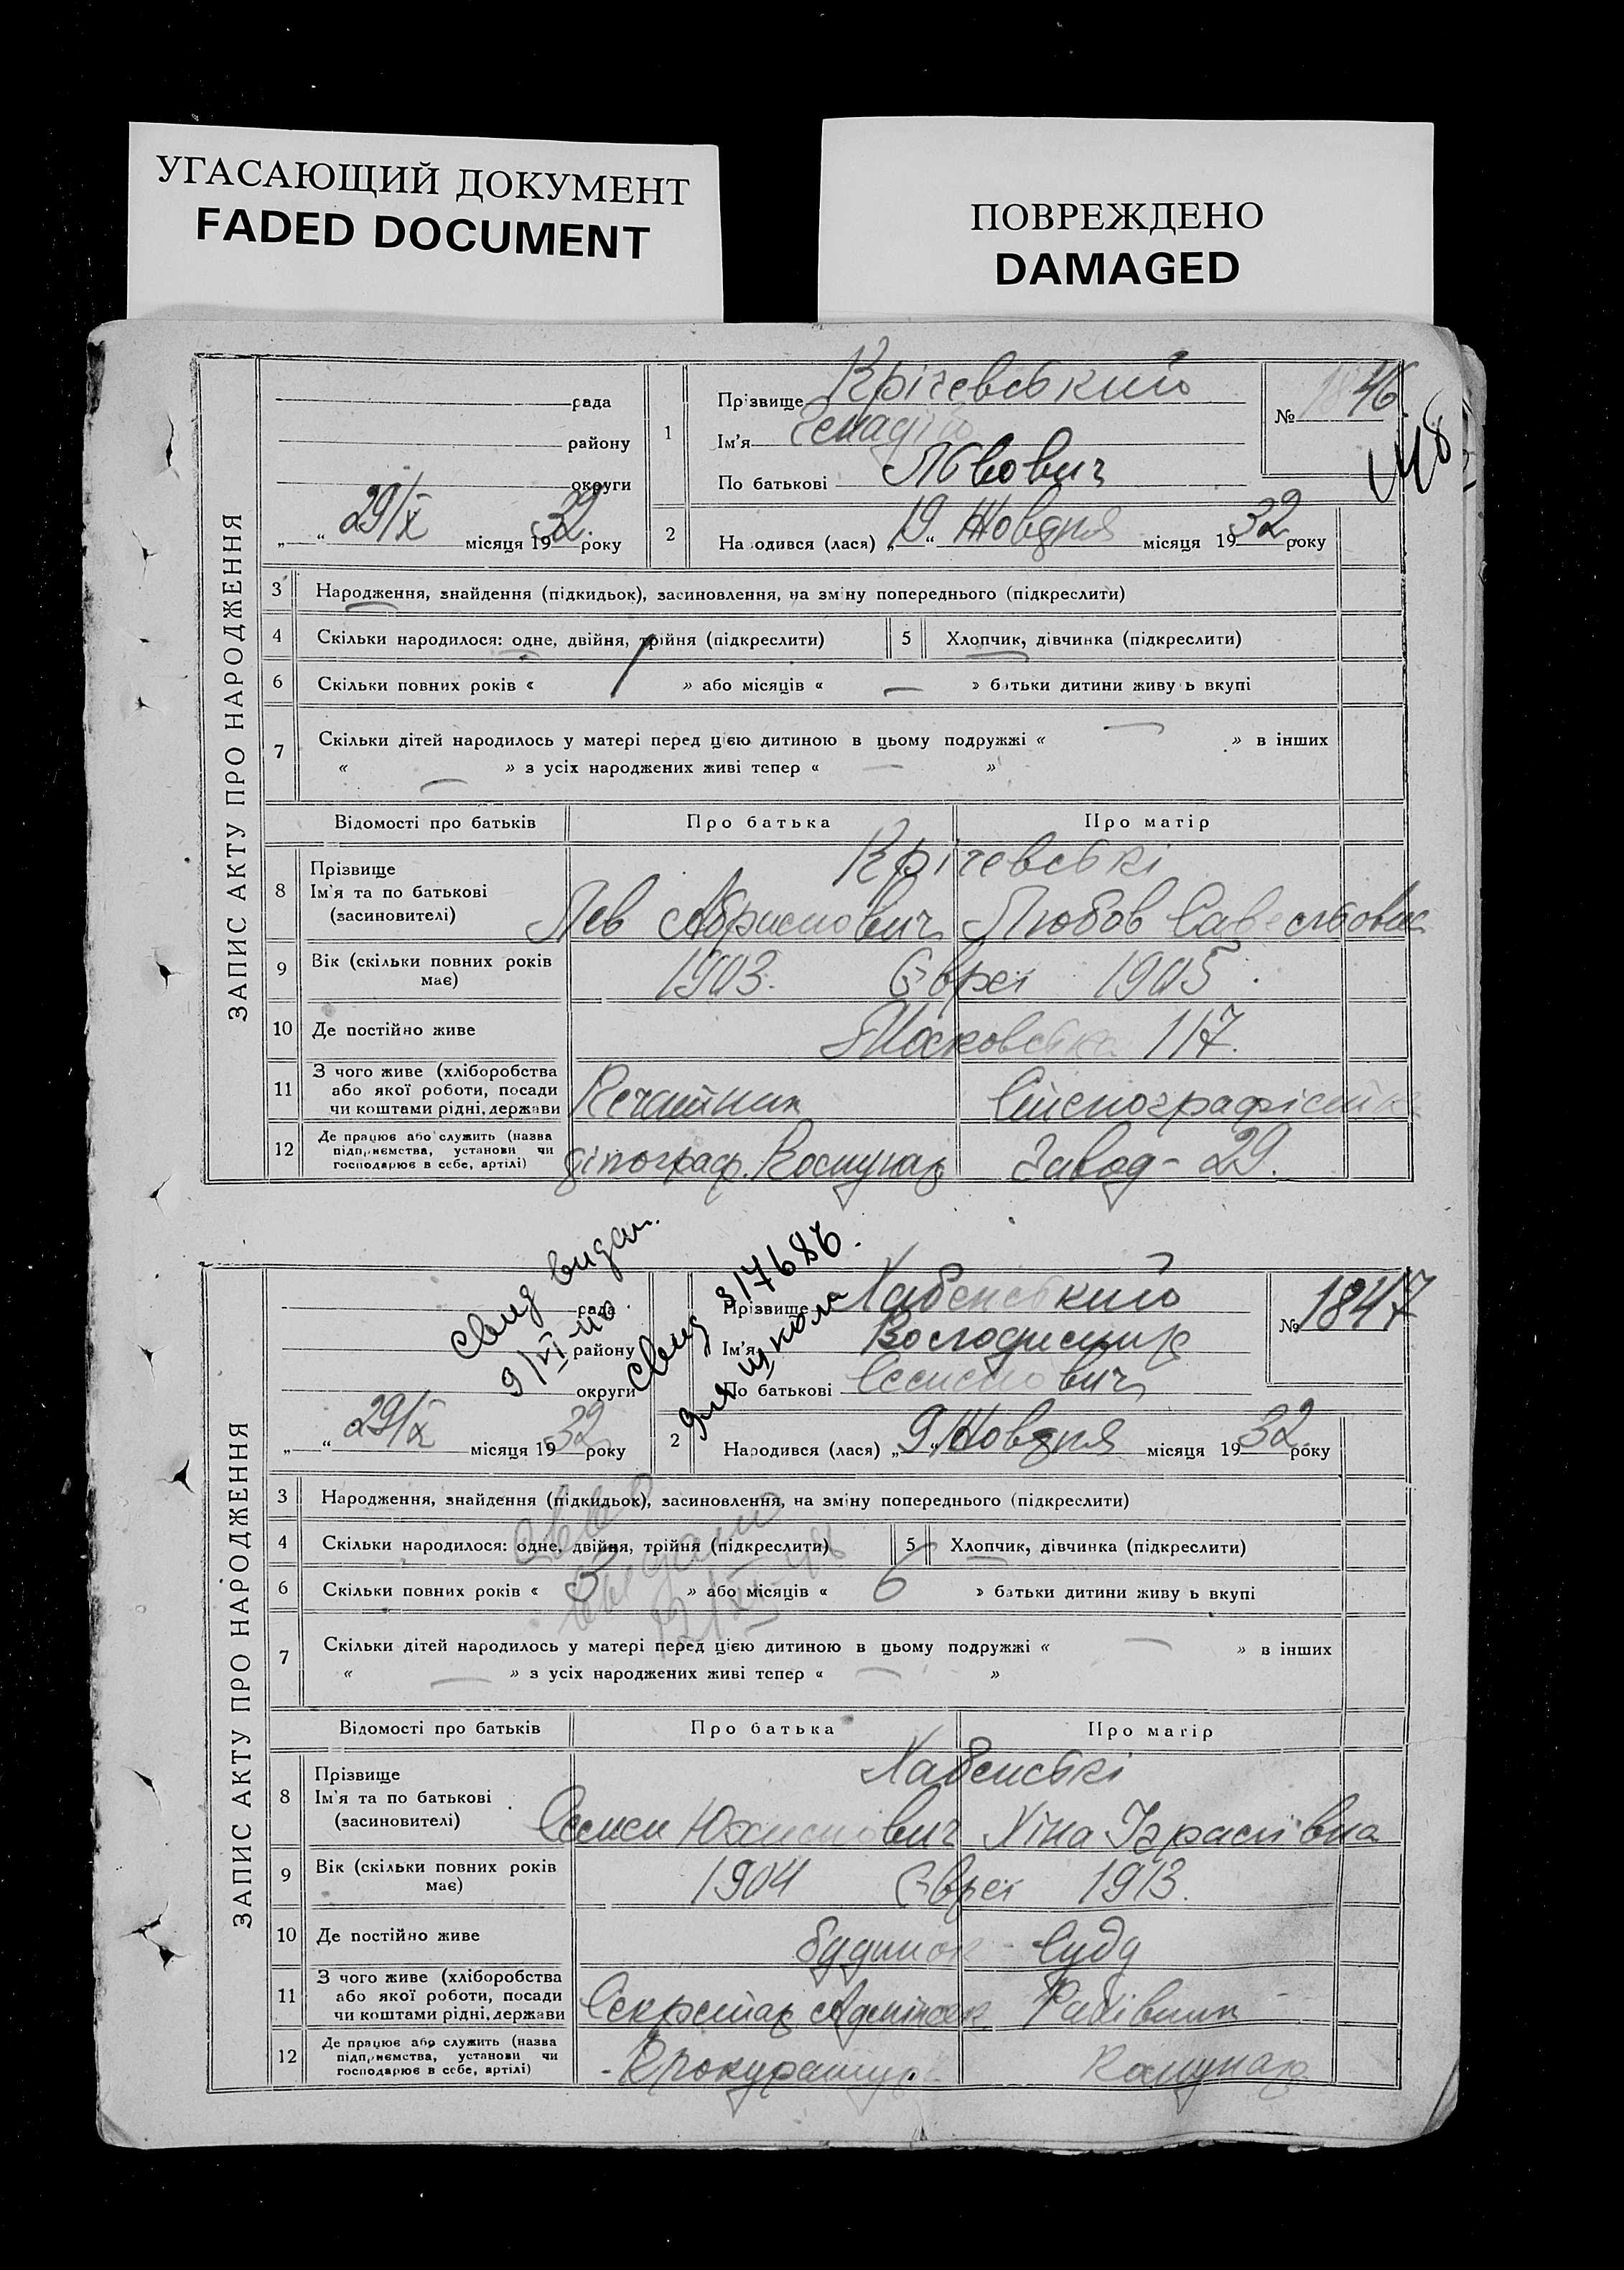 УГАСАЮЩИЙ ДОКУМЕНТ
FADED DOCUMENT
ПОВРЕЖДЕНО
DAMAGED
ЗАПИС АКТУ ПРО НАРОДЖЕННЯ
рада
району
округи
„ “ 29/X місяця 1932. року
1 Прізвище Крічевський
Ім'я Генадій
По батькові Львович
№ 1846.
2 Народився (лася) „19“ Жовдня місяця 1932 року
3 Народження, знайдення (підкидьок), засиновлення, на зміну попереднього (підкреслити)
4 Скільки народилося: одне, двійня, трійня (підкреслити) 5 Хлопчик, дівчинка (підкреслити)
6 Скільки повних років « 1 » або місяців « — » батьки дитини живуть вкупі
7 Скільки дітей народилось у матері перед цією дитиною в цьому подружжі « — » в інших
« — » з усіх народжених живі тепер « — »
Відомості про батьків Про батька Про матір
8 Прізвище Крічевські
Ім'я та по батькові
(засиновителі) Лев Абрамович Любов
9 Вік (скільки повних років має) 1903. Євреї 1905
10 Де постійно живе Московська 117.
11 З чого живе (хліборобства або якої роботи, посади чи коштами рідні, держави Печатник Стенографістка
12 Де працює або служить (назва підприємства, установи чи господарює в себе, артілі) діпограф. Комунар Завод - 29.
свид видан.
9/VI-46.
свид 317686.
для школа
ЗАПИС АКТУ ПРО НАРОДЖЕННЯ
рада
району
округи
„ “ 29/X місяця 1932 року
Прізвище Хабенський
Ім'я Володимир
По батькові Семенович
№ 1847
2 Народився (лася) „9“ Жовдня місяця 1932 року
3 Народження, знайдення (підкидьок), засиновлення, на зміну попереднього (підкреслити)
4 Скільки народилося: одне, двійня, трійня (підкреслити) 5 Хлопчик, дівчинка (підкреслити)
6 Скільки повних років « 3 » або місяців « 6 » батьки дитини живуть вкупі
7 Скільки дітей народилось у матері перед цією дитиною в цьому подружжі « — » в інших
« — » з усіх народжених живі тепер « — »
Відомості про батьків Про батька Про матір
8 Прізвище Хабенські
Ім'я та по батькові
(засиновителі) Семен Юхимович Ніна
9 Вік (скільки повних років має) 1904 Євреї 1913.
10 Де постійно живе будинок - Суду
11 З чого живе (хліборобства або якої роботи, посади чи коштами рідні, держави Секретар Рахівник
12 Де працює або служить (назва підприємства, установи чи господарює в себе, артілі) - Прокуратура Комунар